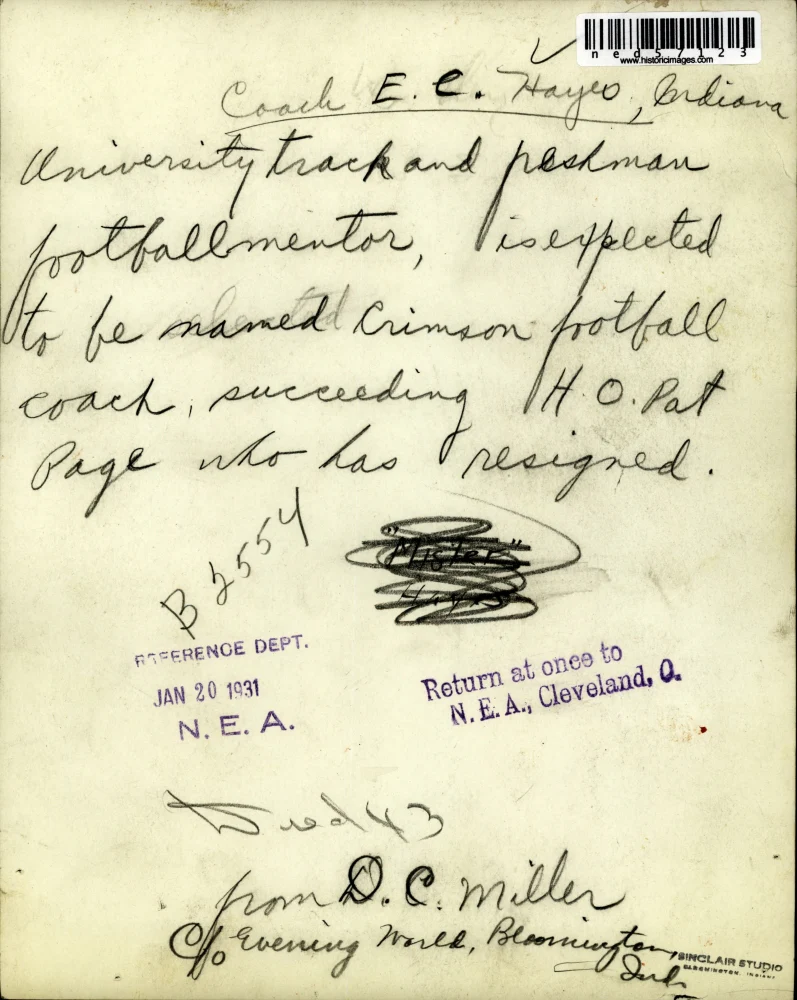 ned57123
www.historicimages.com
Coach E. C. Hayes, Indiana
University track and freshman
football mentor, is expected
to be named Crimson football
coach, succeeding H. O. Pat
Page who has resigned.
B 2554
"Mister"
Hayes
REFERENCE DEPT.
JAN 20 1931
N. E. A.
Return at once to
N. E. A., Cleveland, O.
Died 43
from D. C. Miller
C/o Evening World, Bloomington,
Ind.
SINCLAIR STUDIO
BLOOMINGTON, INDIANA